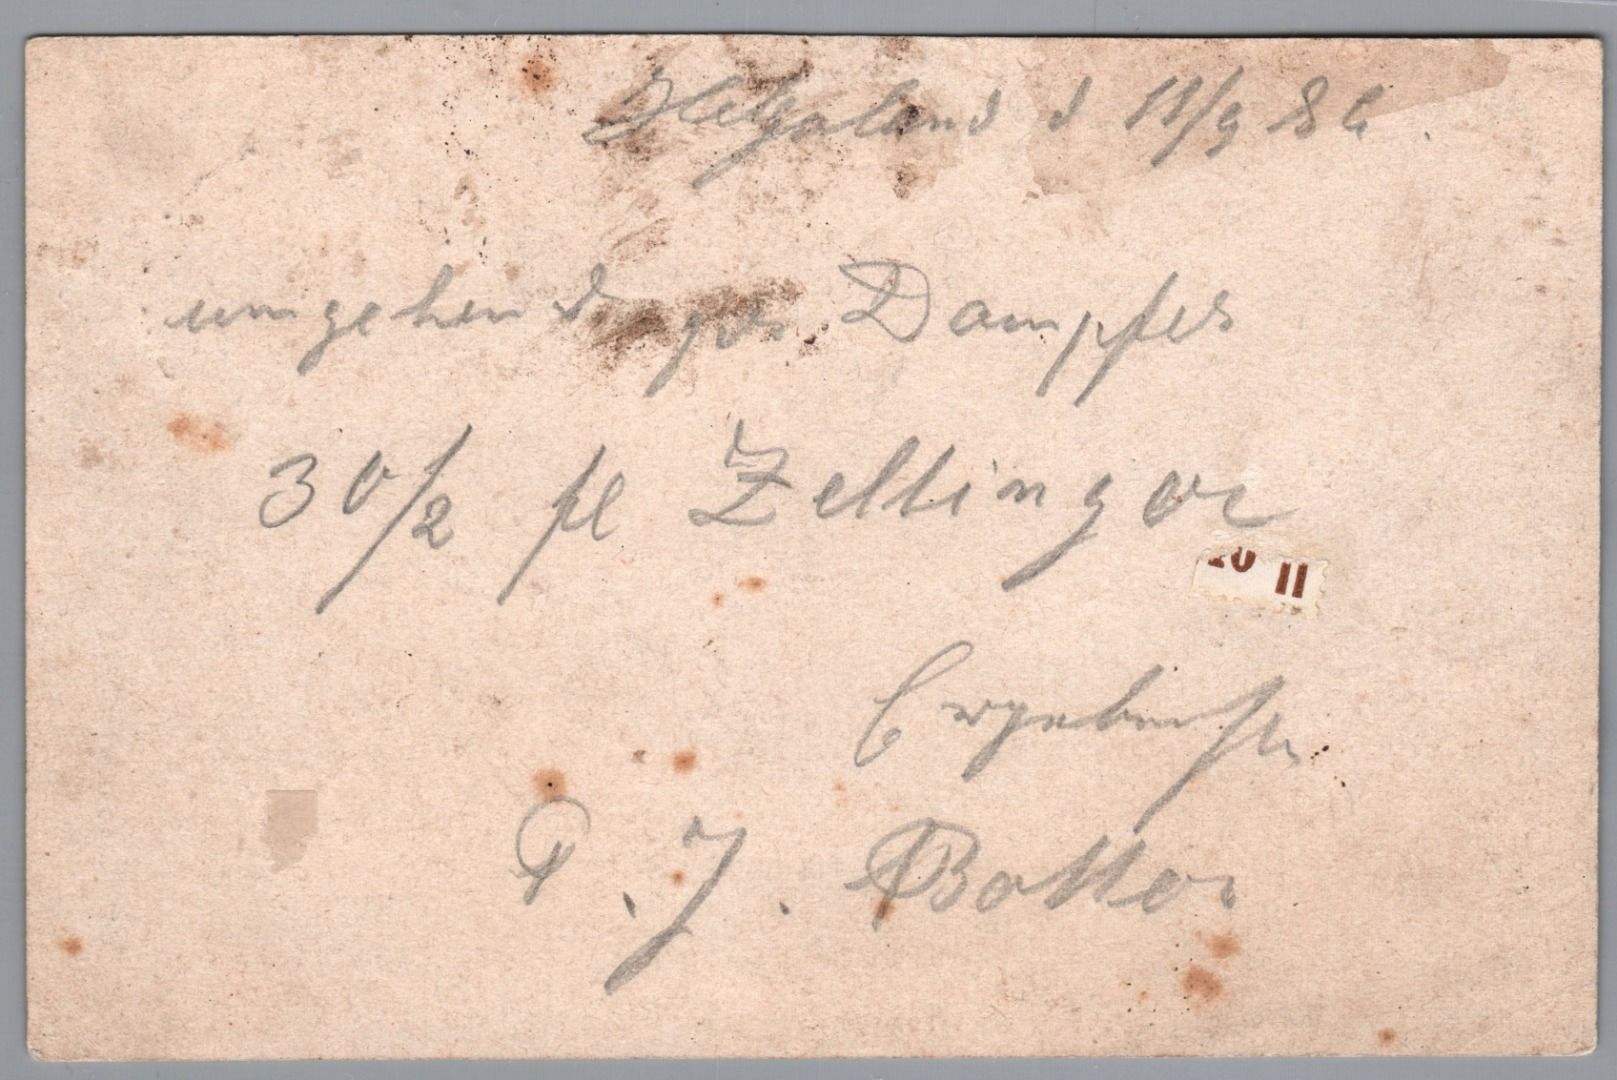 Helgoland d 11/9 86.
umgehend per Dampfer
30/2 fl Zeltinger
10 11
Ergebenst
P. J. Botter